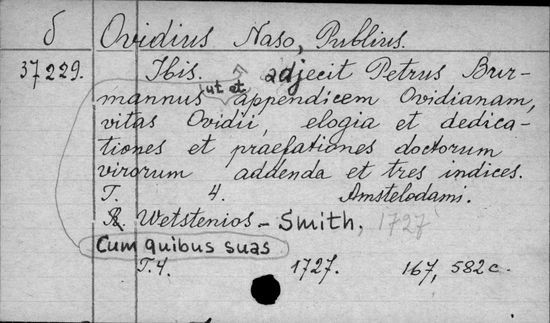 δ Ovidius Naso, Publius.
37229. Ibis. adjecit Petrus Bur-
mannus ut et appendicem Ovidianam,
vitas Ovidii, elogia et dedica-
tiones et praefationes doctorum
virorum addenda et tres indices.
T. 4. Amstelodami.
R. Wetstenios - Smith, 1727
Cum quibus suas
T.4. 1727. 167, 582 c.